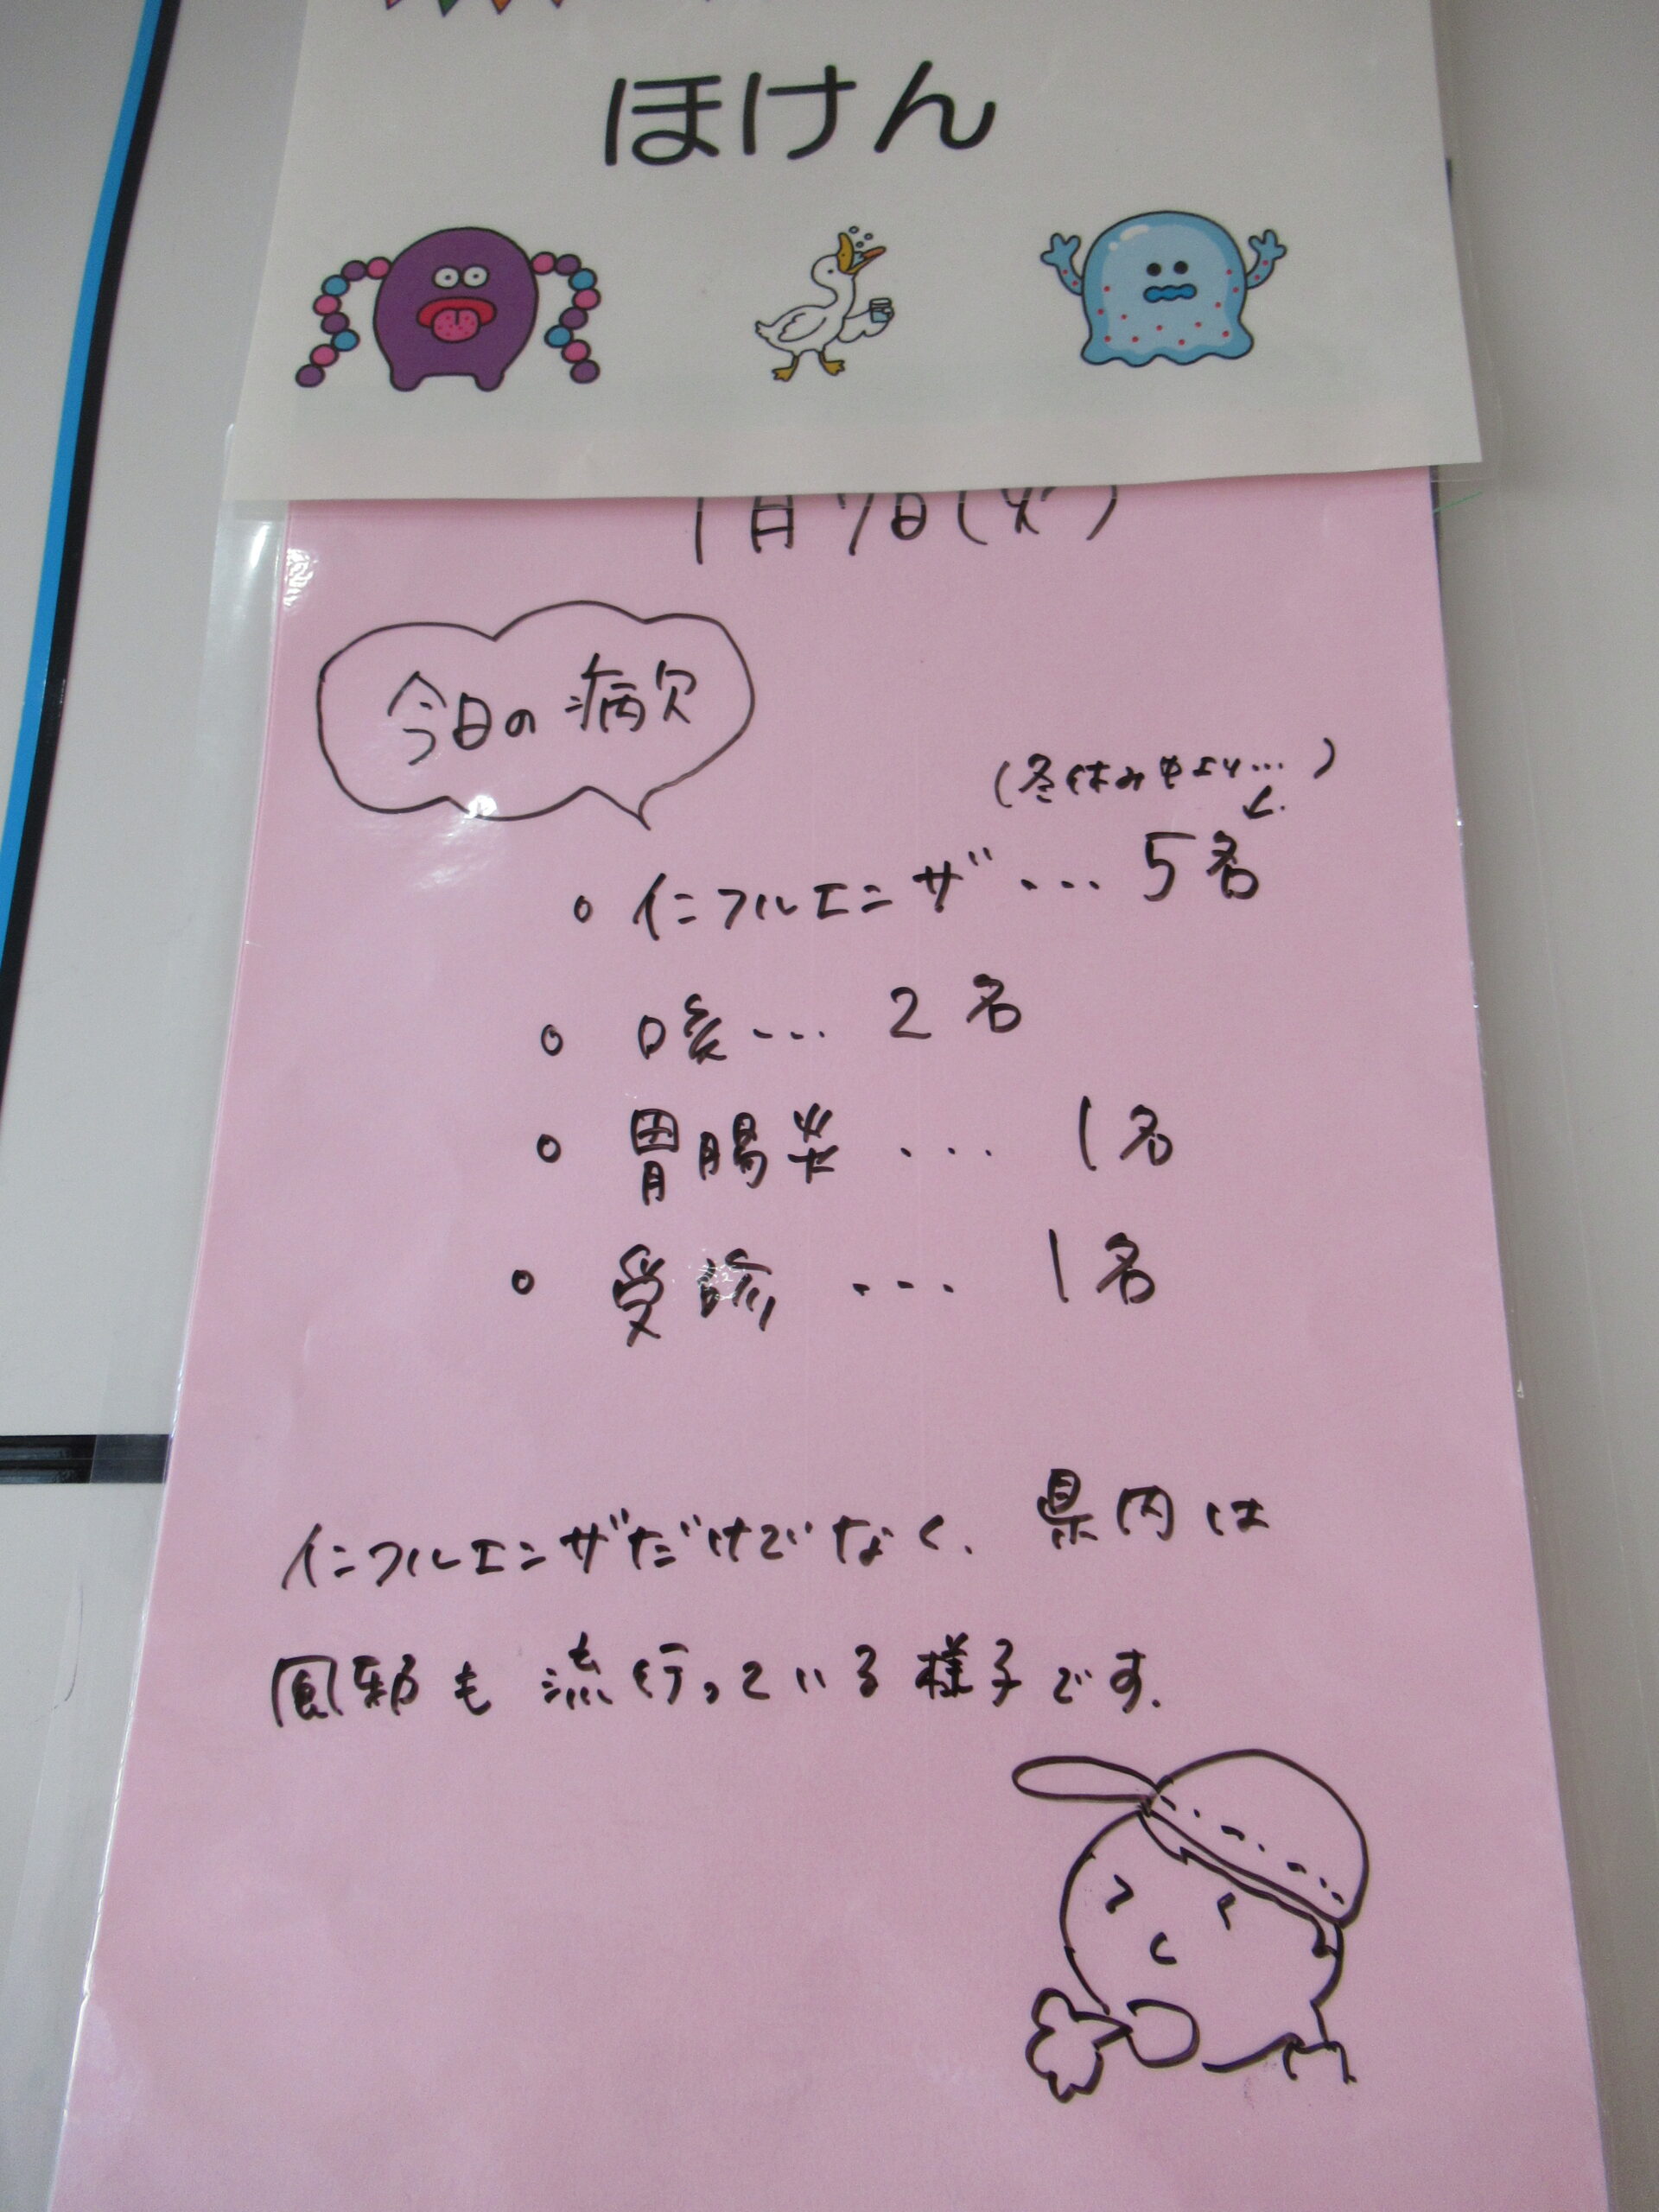 ほけん
1月7日(火)
今日の病欠
(冬休み中より…)
。インフルエンザ … 5名
。咳 … 2名
。胃腸炎 … 1名
。受診 … 1名
インフルエンザだけでなく、県内は
風邪も流行っている様子です。